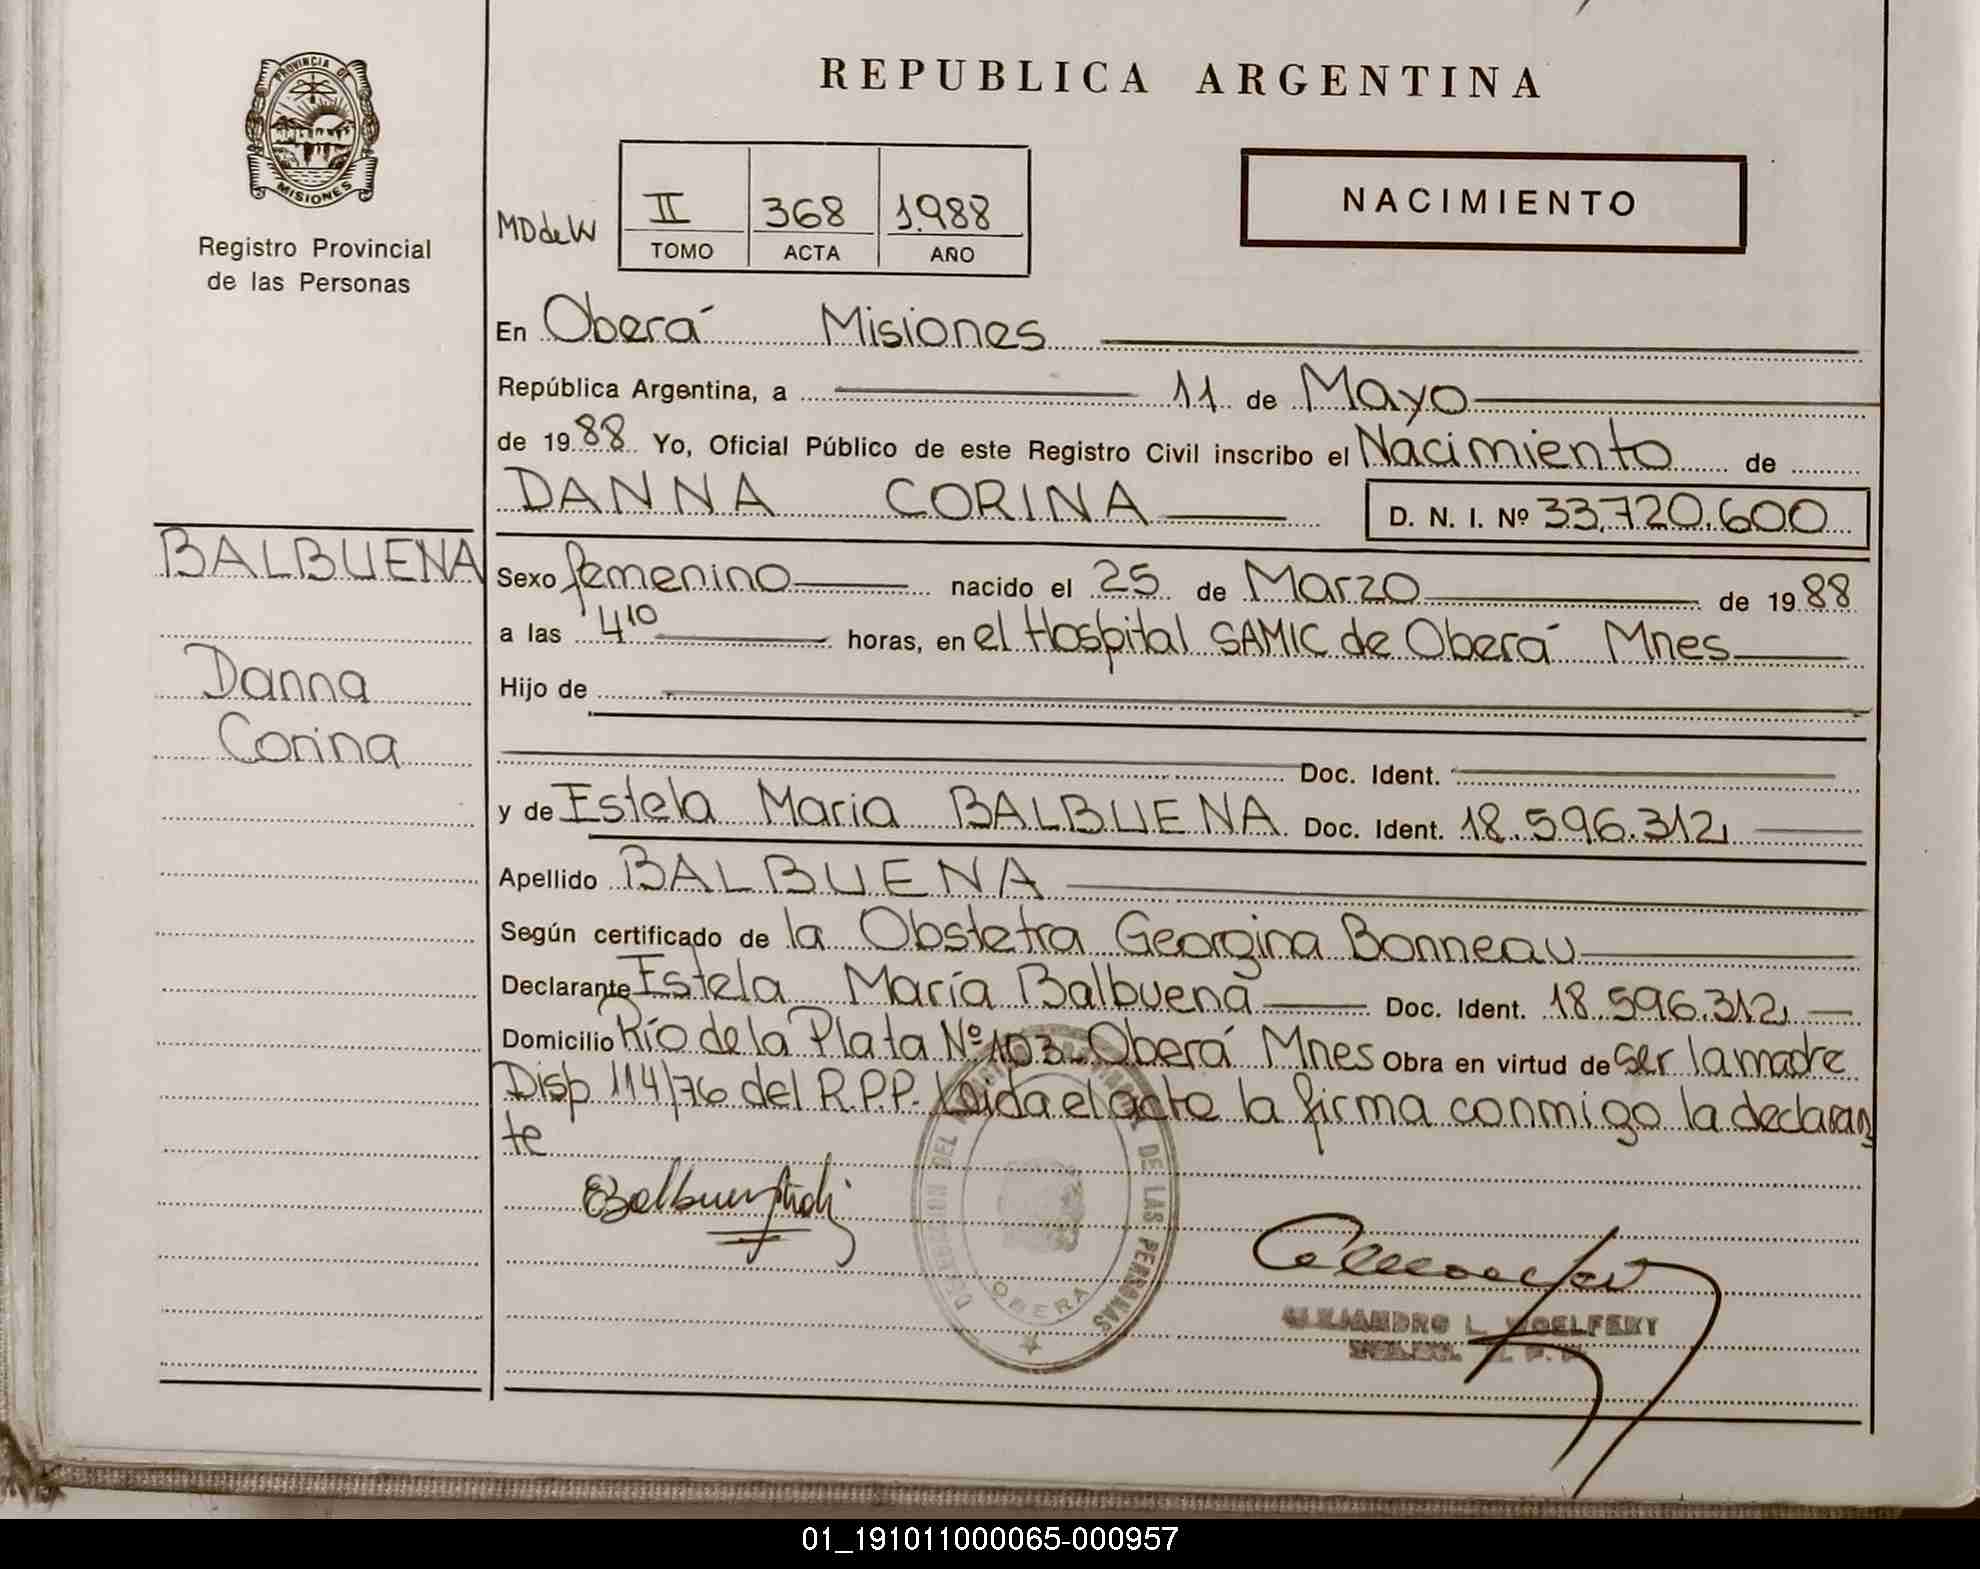 PROVINCIA DE
MISIONES
Registro Provincial
de las Personas
REPUBLICA ARGENTINA
NACIMIENTO
MD de W
II 368 1.988
TOMO ACTA AÑO
En Oberá Misiones
República Argentina, a 11 de Mayo
de 1988 Yo, Oficial Público de este Registro Civil inscribo el Nacimiento de
DANNA CORINA D. N. I. Nº 33.720.600
BALBUENA
Danna
Corina
Sexo femenino nacido el 25 de Marzo de 1988
a las 4 10 horas, en el Hospital SAMIC de Oberá Mnes
Hijo de
Doc. Ident.
y de Estela Maria BALBUENA Doc. Ident. 18.596.312
Apellido BALBUENA
Según certificado de la Obstetra Georgina Bonneau
Declarante Estela María Balbuena Doc. Ident. 18.596.312
Domicilio Río de la Plata Nº 103 - Oberá Mnes Obra en virtud de ser la madre
Disp 114/76 del R.P.P. Leida el acta la firma conmigo la declaran
te
DE LAS PERSONAS
OBERA
ALEJANDRO L. WOELFERT
01_191011000065-000957